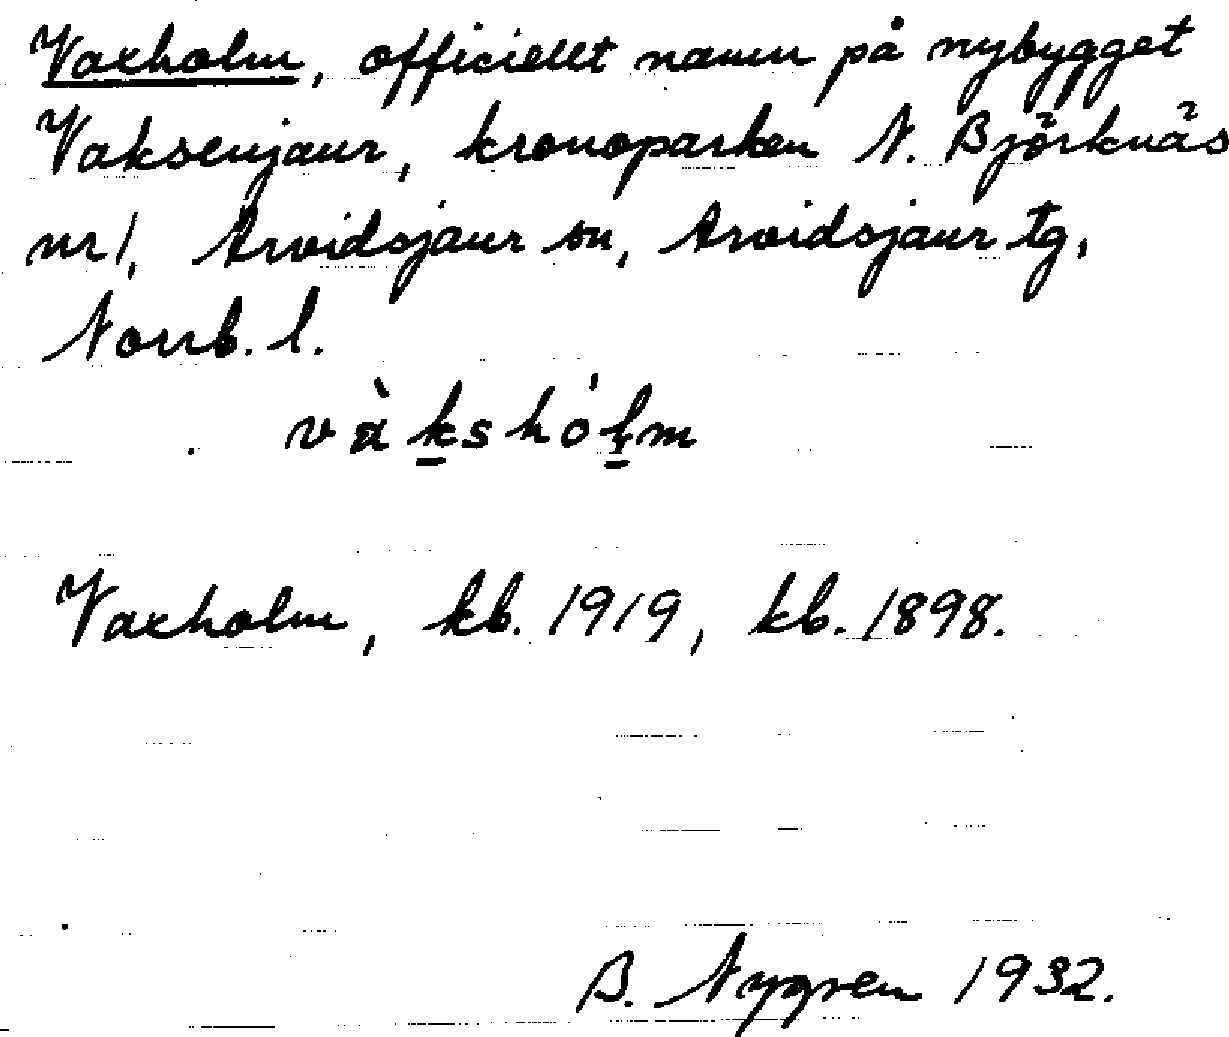 Vaxholm, officiellt namn på nybygget
Vaksenjaur, kronoparken N. Björknäs
nr 1, Arvidsjaur sn, Arvidsjaur tg,
Norrb. l.
vàk̲shól̲̥m
Vaxholm, kb. 1919, kb. 1898.
B. Nygren 1932.